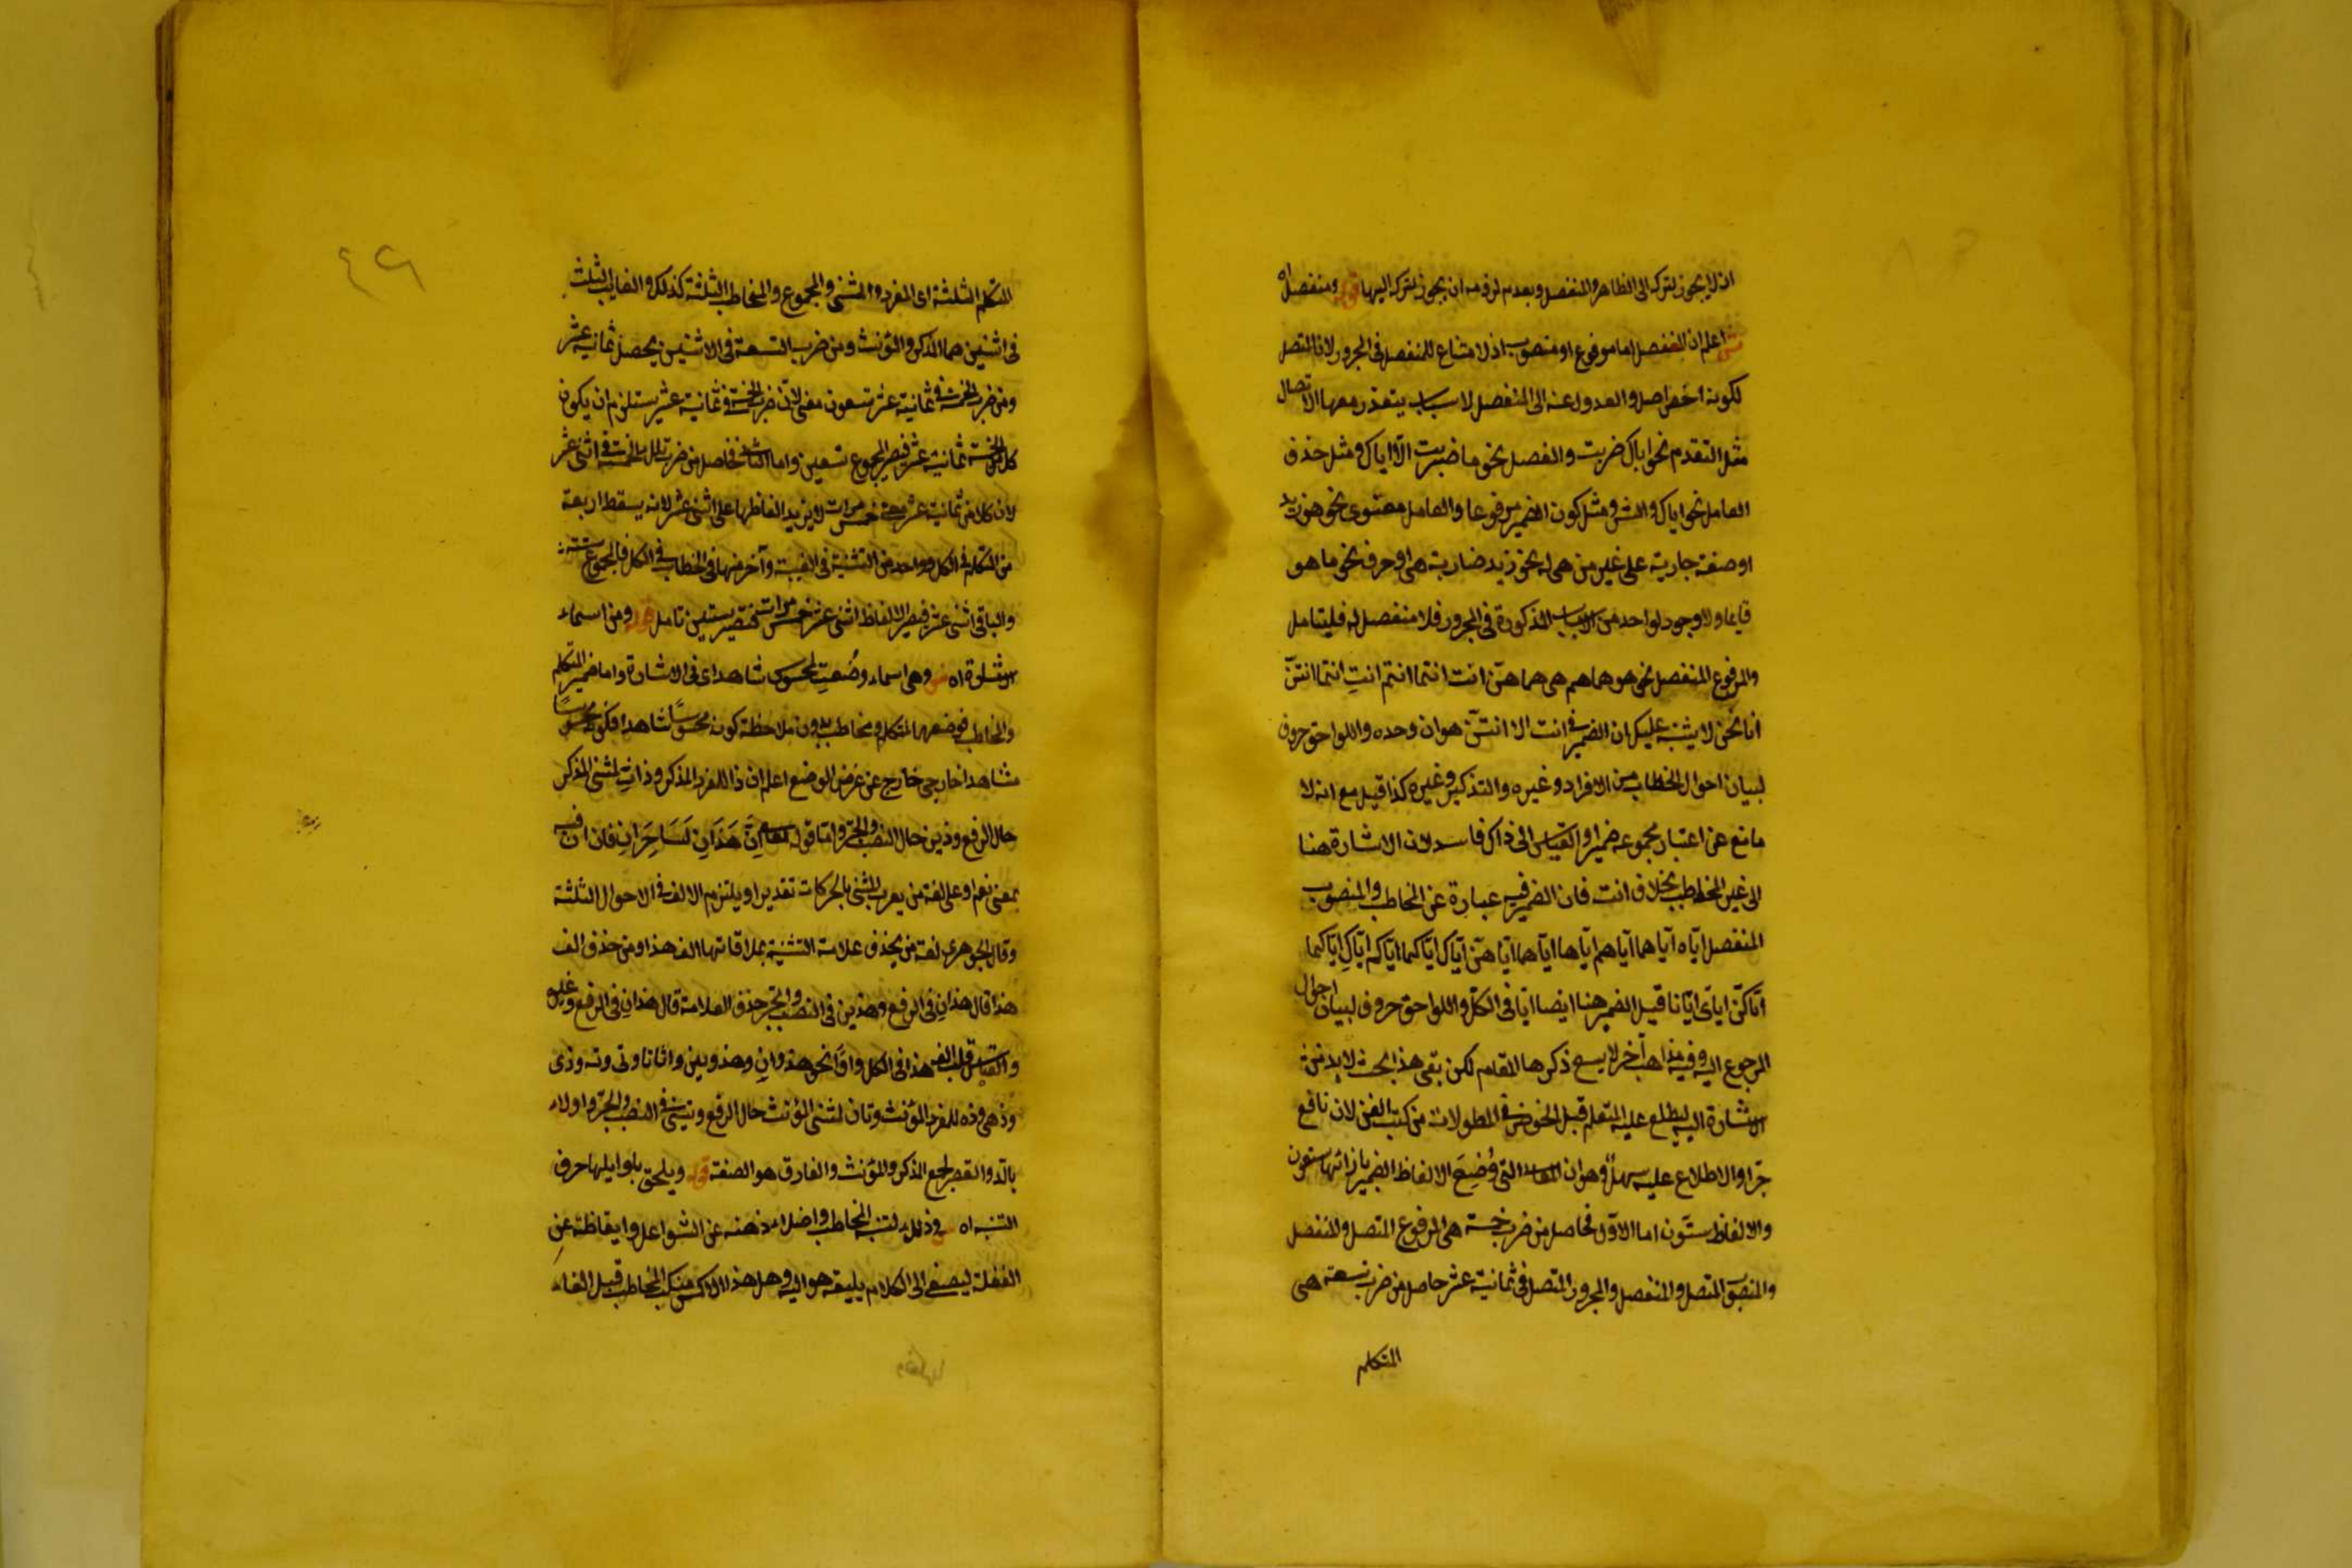 اذ لا يجوز لتركه الى الظاهر والمنفصل وبعدم لزومه ان يجوز لتركه اليها قوله ومنفصل اه
ش اعلم ان المنفصل اما مرفوع او منصوب اذ لامتناع للمنفصل فى المجرور لان المتصل
لكونه اخصر اصل والعدول عنه الى المنفصل لاسباب يتعذر معها الاتصال
مثل التقدم نحو اياك ضربت والفصل نحو ما ضربت الا اياك ومثل حذف
العامل نحو اياك والشر ومثل كون الضمير مرفوعا والعامل معنوى نحو هو زيد
او صفة جارية على غير من هى له نحو زيد ضاربته هى او حرف نحو ما هو
قايما ولا وجود لواحد من الاسباب المذكورة فى المجرور فلا منفصل له فليتامل
والمرفوع المنفصل نحو هو هما هم هى هما هنّ انت انتما انتم انتِ انتما انتنّ
انا نحن لا يشتبه عليك ان الضمير فى انت الا انتنّ هو ان وحده واللواحق حروف
لبيان احوال الخطاب من الافراد وغيره والتذكير وغيره كذا قيل مع انه لا
مانع عن اعتبار مجموعه ضميرا والقياس الى ذاك فاسد لان الاشارة هنا
الى غير المخاطب بخلاف انت فان الضمير فيه عبارة عن المخاطب والمنصوب
المنفصل ايّاه ايّاهما ايّاهم ايّاها ايّاهما ايّاهنّ ايّاك ايّاكما ايّاكم ايّاكِ ايّاكما
ايّاكنّ اياى ايّانا قيل الضمير هنا ايضا ايّا فى الكلّ واللواحق حروف لبيان احوال
المرجوع اليه وفيه مذاهب آخر لا يسع ذكرها المقام لكن بقى هنا بحث لا بد من
الاشارة اليه ليطلع عليه المتعلم قبل الخوض فى المطولات من كتب الفن لانه نافع
جدّا والاطلاع عليه سهل وهو ان المعانى التى وُضِعَ الالفاظ الضمير بازائها تسعون
والالفاظ ستّون اما الاوّل فحاصل من ضرب خمسة هى المرفوع المتصل والمنفصل
والمنصوب المتصل والمنفصل والمجرور المتصل فى ثمانية عشر حاصل من ضرب تسعة هى
المتكلم
٤٢٦
المتكلم الثلثة اى المفرد والمثنى والمجموع والمخاطب الثلثة كذلك والغايب الثلث
فى اثنين هما المذكر والمؤنث ومن ضرب التسعة فى الاثنين يحصل ثمانية عشر
ومن ضرب الخمسة فى ثمانية عشر تسعون معنى لان ضرب الخمسة فى ثمانية عشر يستلزم ان يكون
كل من الخمسة ثمانية عشر فيصير المجموع تسعين واما الثانى فحاصل من ضرب تلك الخمسة فى اثنى عشر
لان كلا من ثمانية عشر خمس مرات لا يزيد الفاظها على اثنى عشر لانه يسقط اربعة
من المتكلم فى الكل وواحد من التثنية فى الغيبة وآخر منها فى الخطاب فى الكل فالمجموع ستة
والباقى اثنى عشر فيصير الالفاظ اثنى عشر خمس مرات فتصير ستين تامل قوله ومن اسماء
الاشارة اه ش وهى اسماء وُضعت لمحسوس شاهد اى فى الاشارة واما ضمير المتكلم
والمخاطب فوضعهما لمتكلم ومخاطب بدون ملاحظة كونه محسوسًا شاهدا فكونه محسوسًا
مشاهدا خارجى خارج عن غرض الوضع اعلم ان ذا للمفرد المذكر وذانِ لمثنى المذكر
حال الرفع وذين حال النصب والجرّ واما قوله تعالى اِنَّ هَذَانِ لَسَاحِرَانِ فان انّ فيه
بمعنى نعم او على لغة من يعرب المثنى بالحركات تقديرا ويلتزم الالف فى الاحوال الثلثة
وقال الجوهرى لغة من يحذف علامة التثنية بملاقاتها الف هذا ومن حذف الف
هذا قال هذانِ فى الرفع وهذين فى النصب والجر حذف العلامة قال هذانِ فى الرفع وغيره
والقياس قلب الف هذا فى الكل واوًا نحو هذوانِ وهذوين واتا تا وتى وته وذى
وذهى وذه للمفرد المؤنث وتان لمثنى المؤنث حال الرفع وتين فى النصب والجرّ واولاء
بالمدّ والقصر لجمع المذكر والمؤنث والفارق هو الصفة قوله ويلحق باوايلها حرف
التنبيه اه ش وذلك لتنبيه المخاطب واخلاء ذهنه عن الشواغل وايقاظه عن
الغفلة ليصغى الى الكلام